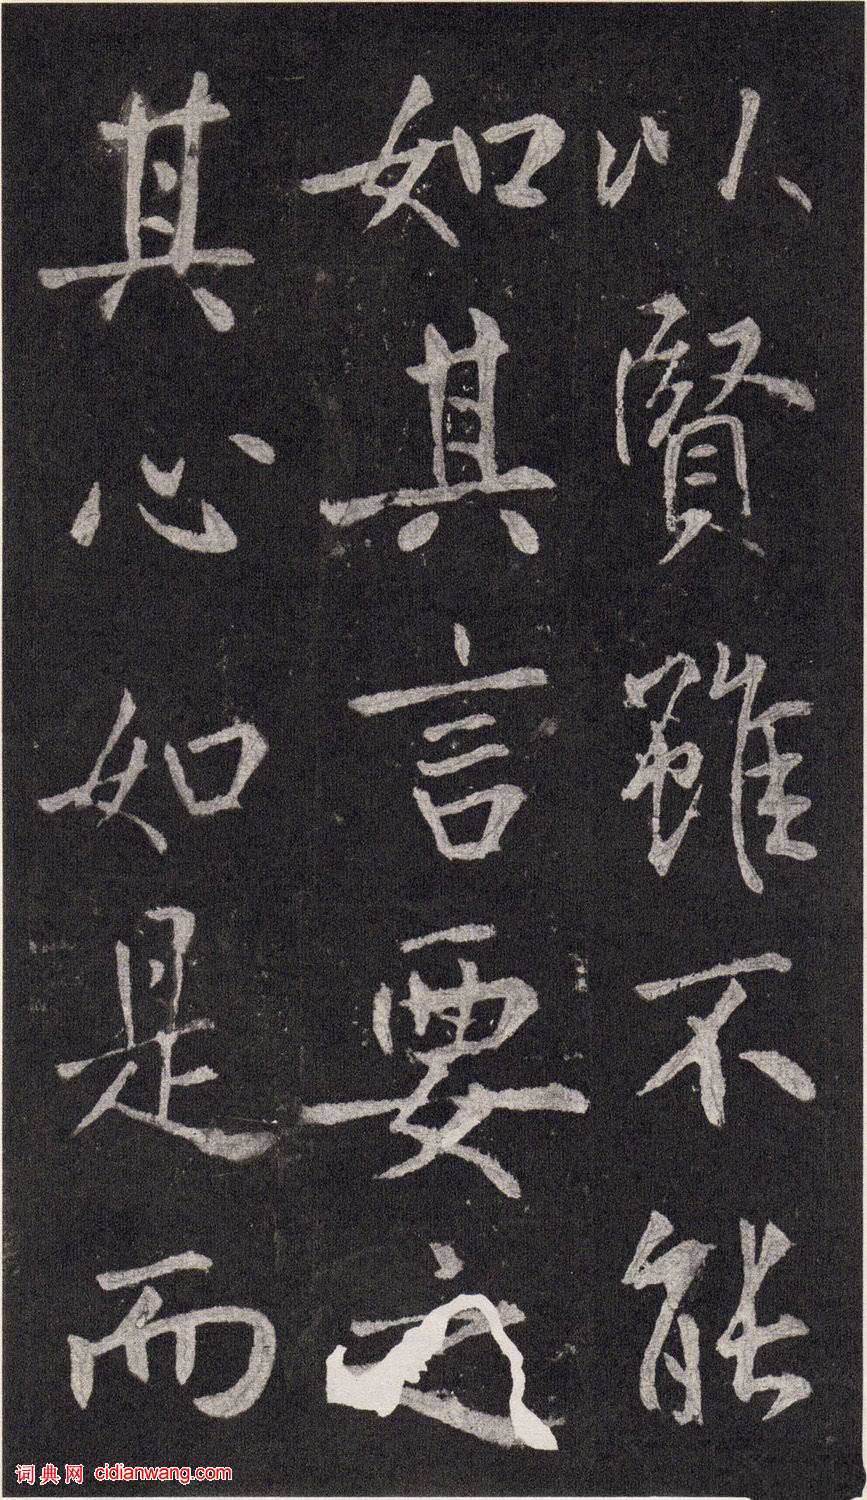 以賢雖不能
如其言要之
其心如是而
词典网 cidianwang.com